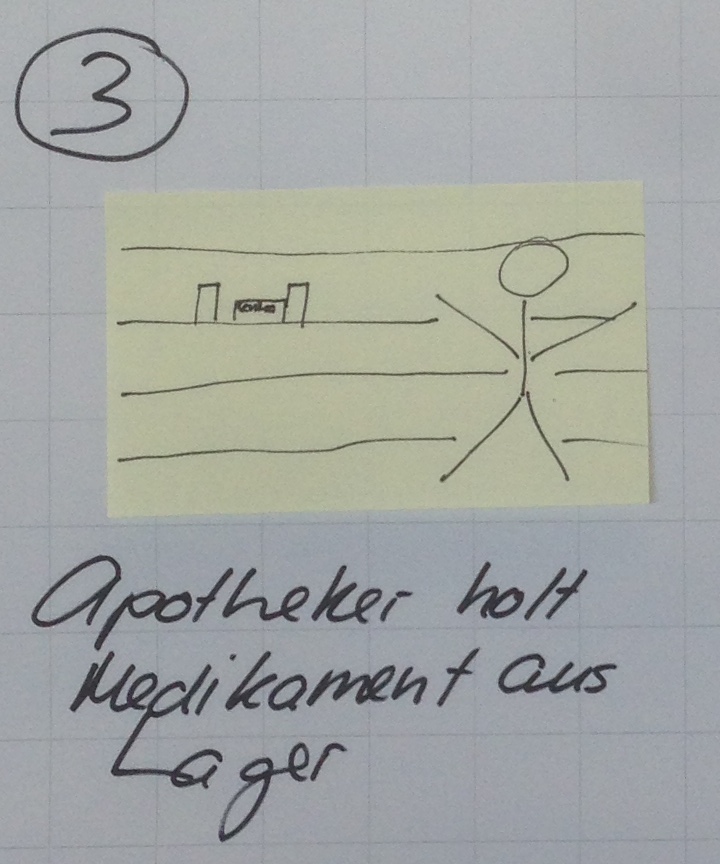 3
Apotheker holt
Medikament aus
Lager